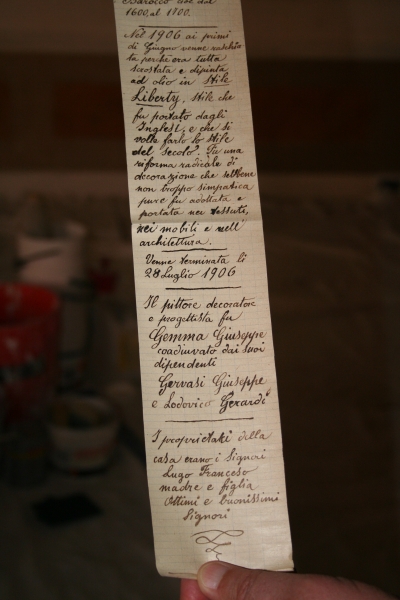 Barocco che dal
1600, al 1700.
Nel 1906 ai primi
di Giugno venne raschia
ta perche era tutta
scrostata e dipinta
ad olio in Stile
Liberty, stile che
fu portato dagli
Inglesi, e che si
volle farlo lo stile
del secolo. Fu una
riforma radicale di
decorazione che sebbene
non troppo simpatica
pure fu adottata e
portata nei tessuti,
nei mobili e nell'
architettura.
Venne terminata li
28 Luglio 1906
Il pittore decoratore
e progettista fu
Gemma Giuseppe
coadiuvato dai suoi
dipendenti
Gervasi Giuseppe
e Lodovico Gerardi
I proprietari della
casa erano i Signori
Lugo Franceso
madre e figlia
Ottimi e buonissimi
Signori